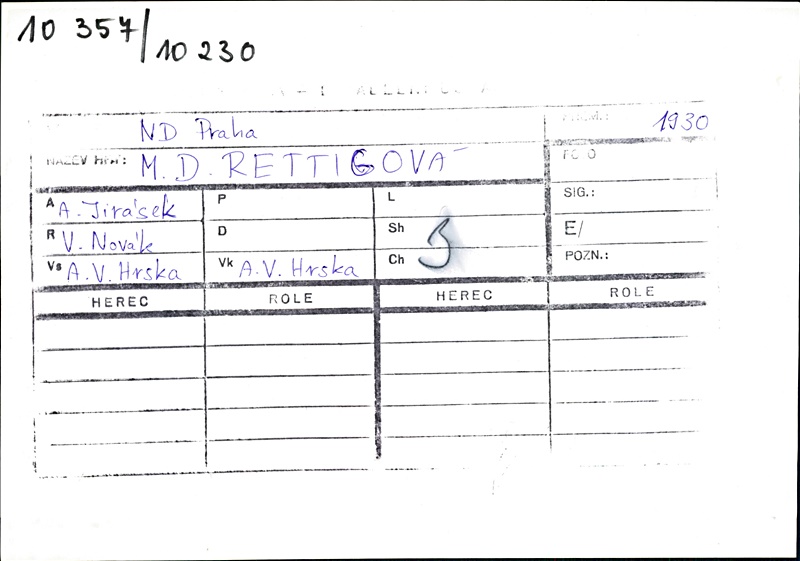 10 357/10 230
ND Praha
1930
NÁZEV HRY: M. D. RETTIGOVÁ
A A. Jirásek P L SIG.:
R V. Novák D Sh E/
Vs A.V. Hrska Vk A.V. Hrska Ch POZN.:
HEREC ROLE HEREC ROLE